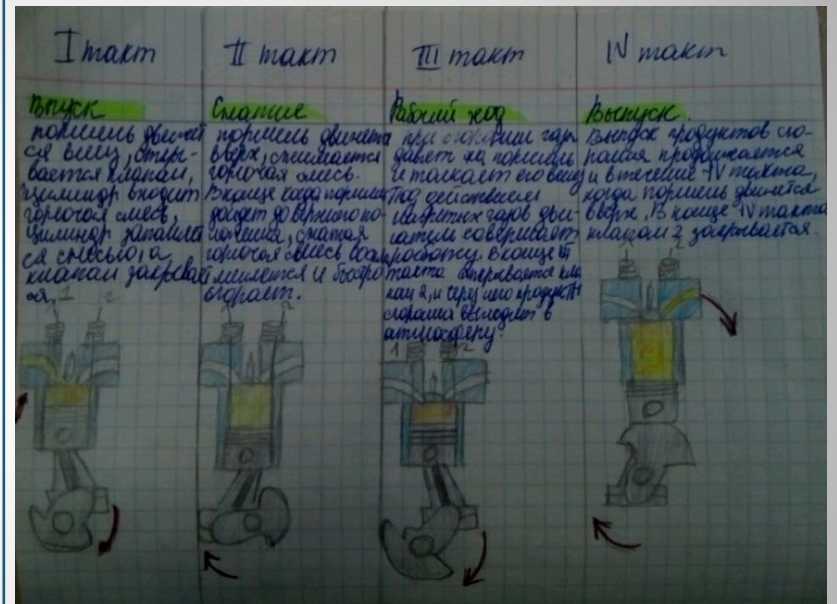 I такт
Впуск
поршень движет
ся вниз, откры-
вается клапан,
цилиндр входит
горючая смесь,
цилиндр заполня
ся смесью, а
клапан закрывает
ся,
1 2
II такт
Сжатие
поршень движется
вверх, сжимается
горючая смесь.
В конце когда поршень
дойдет до верхнего по-
ложения, сжатая
горючая смесь воспл
меняется и быстро
сгорает.
III такт
Рабочий ход
при сгорании газы
давят на поршень
и толкают его вниз
Под действием
нагретых газов дви-
гатель совершает
работу. В конце III
такта открывается кла
пан 2, и через него продукты
сгорания выходят в
атмосферу.
1 2
IV такт
Выпуск.
Выпуск продуктов сго-
рания продолжается
и в течение IV такта,
когда поршень движется
вверх. В конце IV такта
клапан 2 закрывается.